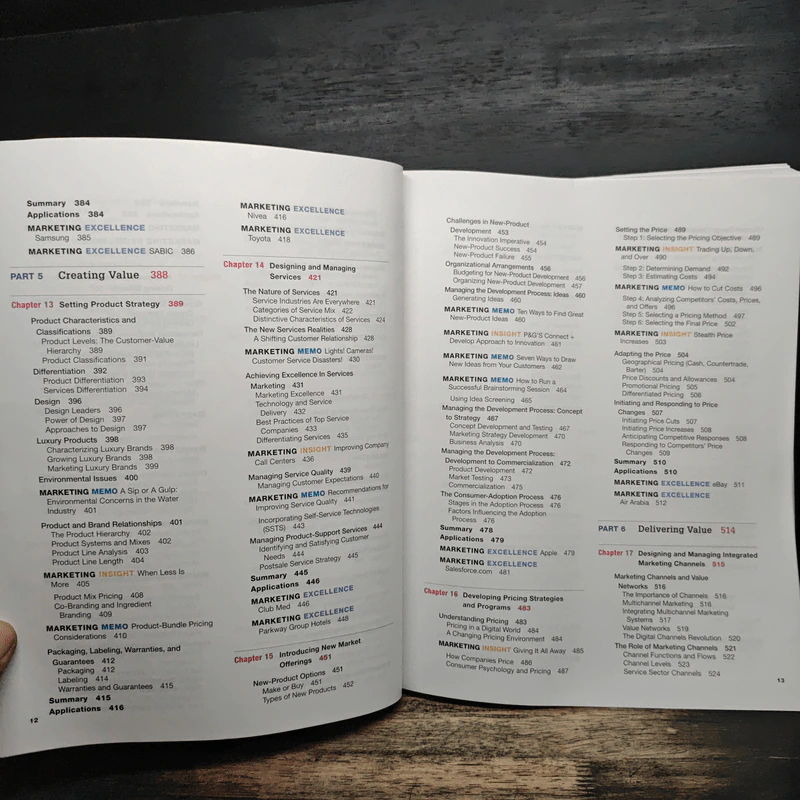 Summary 384
Applications 384
MARKETING EXCELLENCE
Samsung 385
MARKETING EXCELLENCE SABIC 386
PART 5 Creating Value 388
Chapter 13 Setting Product Strategy 389
Product Characteristics and
Classifications 389
Product Levels: The Customer-Value
Hierarchy 389
Product Classifications 391
Differentiation 392
Product Differentiation 393
Services Differentiation 394
Design 396
Design Leaders 396
Power of Design 397
Approaches to Design 397
Luxury Products 398
Characterizing Luxury Brands 398
Growing Luxury Brands 398
Marketing Luxury Brands 399
Environmental Issues 400
MARKETING MEMO A Sip or A Gulp:
Environmental Concerns in the Water
Industry 401
Product and Brand Relationships 401
The Product Hierarchy 402
Product Systems and Mixes 402
Product Line Analysis 403
Product Line Length 404
MARKETING INSIGHT When Less Is
More 405
Product Mix Pricing 408
Co-Branding and Ingredient
Branding 409
MARKETING MEMO Product-Bundle Pricing
Considerations 410
Packaging, Labeling, Warranties, and
Guarantees 412
Packaging 412
Labeling 414
Warranties and Guarantees 415
Summary 415
Applications 416
12
MARKETING EXCELLENCE
Nivea 416
MARKETING EXCELLENCE
Toyota 418
Chapter 14 Designing and Managing
Services 421
The Nature of Services 421
Service Industries Are Everywhere 421
Categories of Service Mix 422
Distinctive Characteristics of Services 424
The New Services Realities 428
A Shifting Customer Relationship 428
MARKETING MEMO Lights! Cameras!
Customer Service Disasters! 430
Achieving Excellence In Services
Marketing 431
Marketing Excellence 431
Technology and Service
Delivery 432
Best Practices of Top Service
Companies 433
Differentiating Services 435
MARKETING INSIGHT Improving Company
Call Centers 436
Managing Service Quality 439
Managing Customer Expectations 440
MARKETING MEMO Recommendations for
Improving Service Quality 441
Incorporating Self-Service Technologies
(SSTS) 443
Managing Product-Support Services 444
Identifying and Satisfying Customer
Needs 444
Postsale Service Strategy 445
Summary 445
Applications 446
MARKETING EXCELLENCE
Club Med 446
MARKETING EXCELLENCE
Parkway Group Hotels 448
Chapter 15 Introducing New Market
Offerings 451
New-Product Options 451
Make or Buy 451
Types of New Products 452
Challenges in New-Product
Development 453
The Innovation Imperative 454
New-Product Success 454
New-Product Failure 455
Organizational Arrangements 456
Budgeting for New-Product Development 456
Organizing New-Product Development 457
Managing the Development Process: Ideas 460
Generating Ideas 460
MARKETING MEMO Ten Ways to Find Great
New-Product Ideas 460
MARKETING INSIGHT P&G'S Connect +
Develop Approach to Innovation 461
MARKETING MEMO Seven Ways to Draw
New Ideas from Your Customers 462
MARKETING MEMO How to Run a
Successful Brainstorming Session 464
Using Idea Screening 465
Managing the Development Process: Concept
to Strategy 467
Concept Development and Testing 467
Marketing Strategy Development 470
Business Analysis 470
Managing the Development Process:
Development to Commercialization 472
Product Development 472
Market Testing 473
Commercialization 475
The Consumer-Adoption Process 476
Stages in the Adoption Process 476
Factors Influencing the Adoption
Process 476
Summary 478
Applications 479
MARKETING EXCELLENCE Apple 479
MARKETING EXCELLENCE
Salesforce.com 481
Chapter 16 Developing Pricing Strategies
and Programs 483
Understanding Pricing 483
Pricing in a Digital World 484
A Changing Pricing Environment 484
MARKETING INSIGHT Giving It All Away 485
How Companies Price 486
Consumer Psychology and Pricing 487
Setting the Price 489
Step 1: Selecting the Pricing Objective 489
MARKETING INSIGHT Trading Up, Down,
and Over 490
Step 2: Determining Demand 492
Step 3: Estimating Costs 494
MARKETING MEMO How to Cut Costs 496
Step 4: Analyzing Competitors' Costs, Prices,
and Offers 496
Step 5: Selecting a Pricing Method 497
Step 6: Selecting the Final Price 502
MARKETING INSIGHT Stealth Price
Increases 503
Adapting the Price 504
Geographical Pricing (Cash, Countertrade,
Barter) 504
Price Discounts and Allowances 504
Promotional Pricing 505
Differentiated Pricing 506
Initiating and Responding to Price
Changes 507
Initiating Price Cuts 507
Initiating Price Increases 508
Anticipating Competitive Responses 508
Responding to Competitors' Price
Changes 509
Summary 510
Applications 510
MARKETING EXCELLENCE eBay 511
MARKETING EXCELLENCE
Air Arabia 512
PART 6 Delivering Value 514
Chapter 17 Designing and Managing Integrated
Marketing Channels 515
Marketing Channels and Value
Networks 516
The Importance of Channels 516
Multichannel Marketing 516
Integrating Multichannel Marketing
Systems 517
Value Networks 519
The Digital Channels Revolution 520
The Role of Marketing Channels 521
Channel Functions and Flows 522
Channel Levels 523
Service Sector Channels 524
13